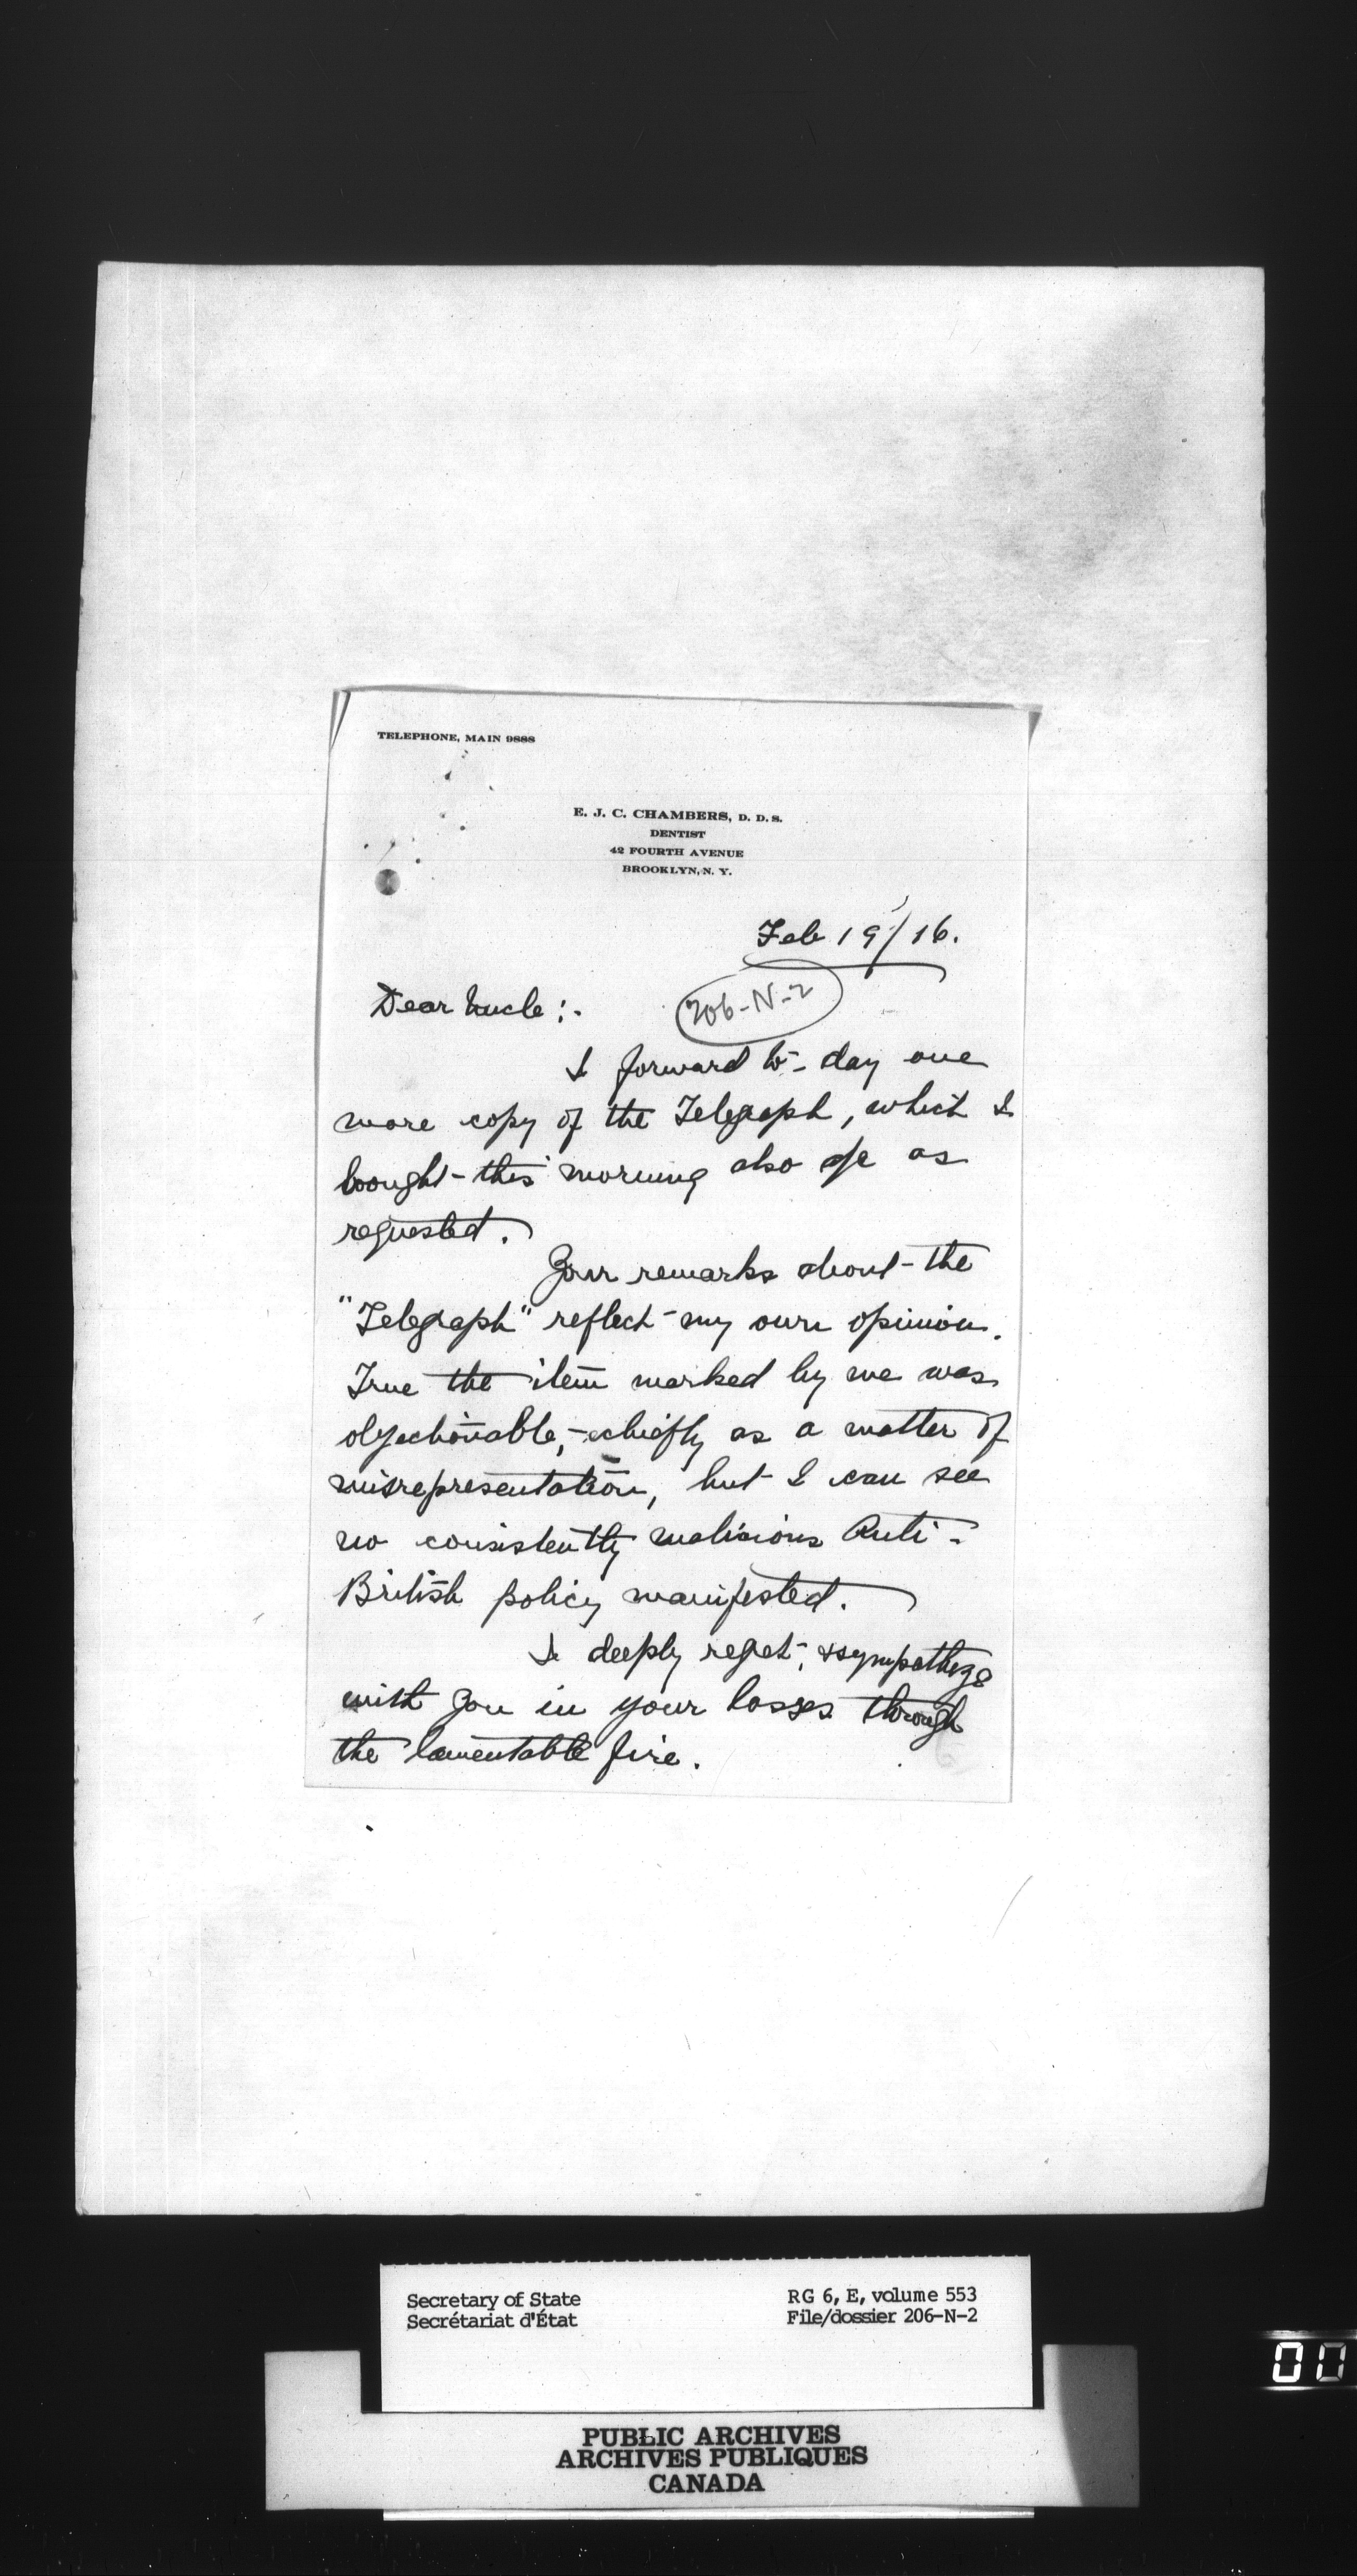 TELEPHONE, MAIN 9888
E. J. C. CHAMBERS, D. D. S.
DENTIST
42 FOURTH AVENUE
BROOKLYN, N. Y.
Feb 19/16.
Dear Uncle :-
206-N-2
I forward to-day one
more copy of the Telegraph, which I
bought this morning also a/c as
requested.
Your remarks about the
"Telegraph" reflect my own opinion.
True the item marked by me was
objectionable, - chiefly as a matter of
misrepresentation, but I can see
no consistently malicious Anti-
British policy manifested.
I deeply regret, & sympathize
with you in your losses through
the lamentable fire.
Secretary of State
Secrétariat d'État
RG 6, E, volume 553
File/dossier 206-N-2
00
PUBLIC ARCHIVES
ARCHIVES PUBLIQUES
CANADA